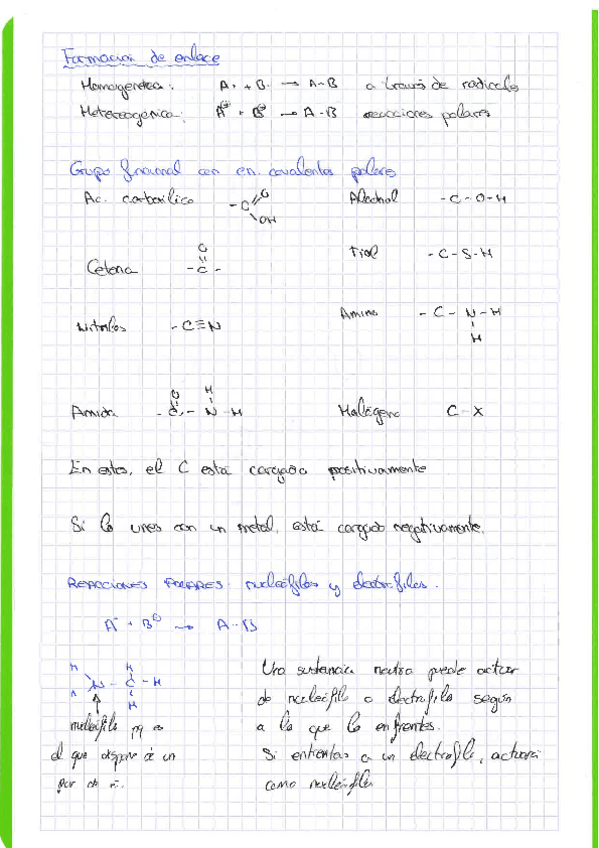 Formación de enlace
Homogenica: A· + B· → A-B a través de radicales
Heterogénica: A⊕ + B⊖ → A-B reacciones polares
Grupo funcional con en. covalentes polares
Ac. carboxílico -C O OH Alcohol -C-O-H
Cetona O -C- Tiol -C-S-H
Nitrilos -C≡N Amina -C-N-H H
Amida O H -C-N-H Halógeno C-X
En estos, el C está cargado positivamente
Si lo unes con un metal, está cargado negativamente.
REACCIONES POLARES: nucleófilos y electrófilos.
A⁻ + B⊕ → A-B
H H Una sustancia neutra puede actuar
N - C - H de nucleófilo o electrófilo según
H H
nucleófilo pq es a lo que lo enfrentes.
el que dispone de un Si enfrentas a un electrófilo, actuará
par de e⁻. como nucleófilo